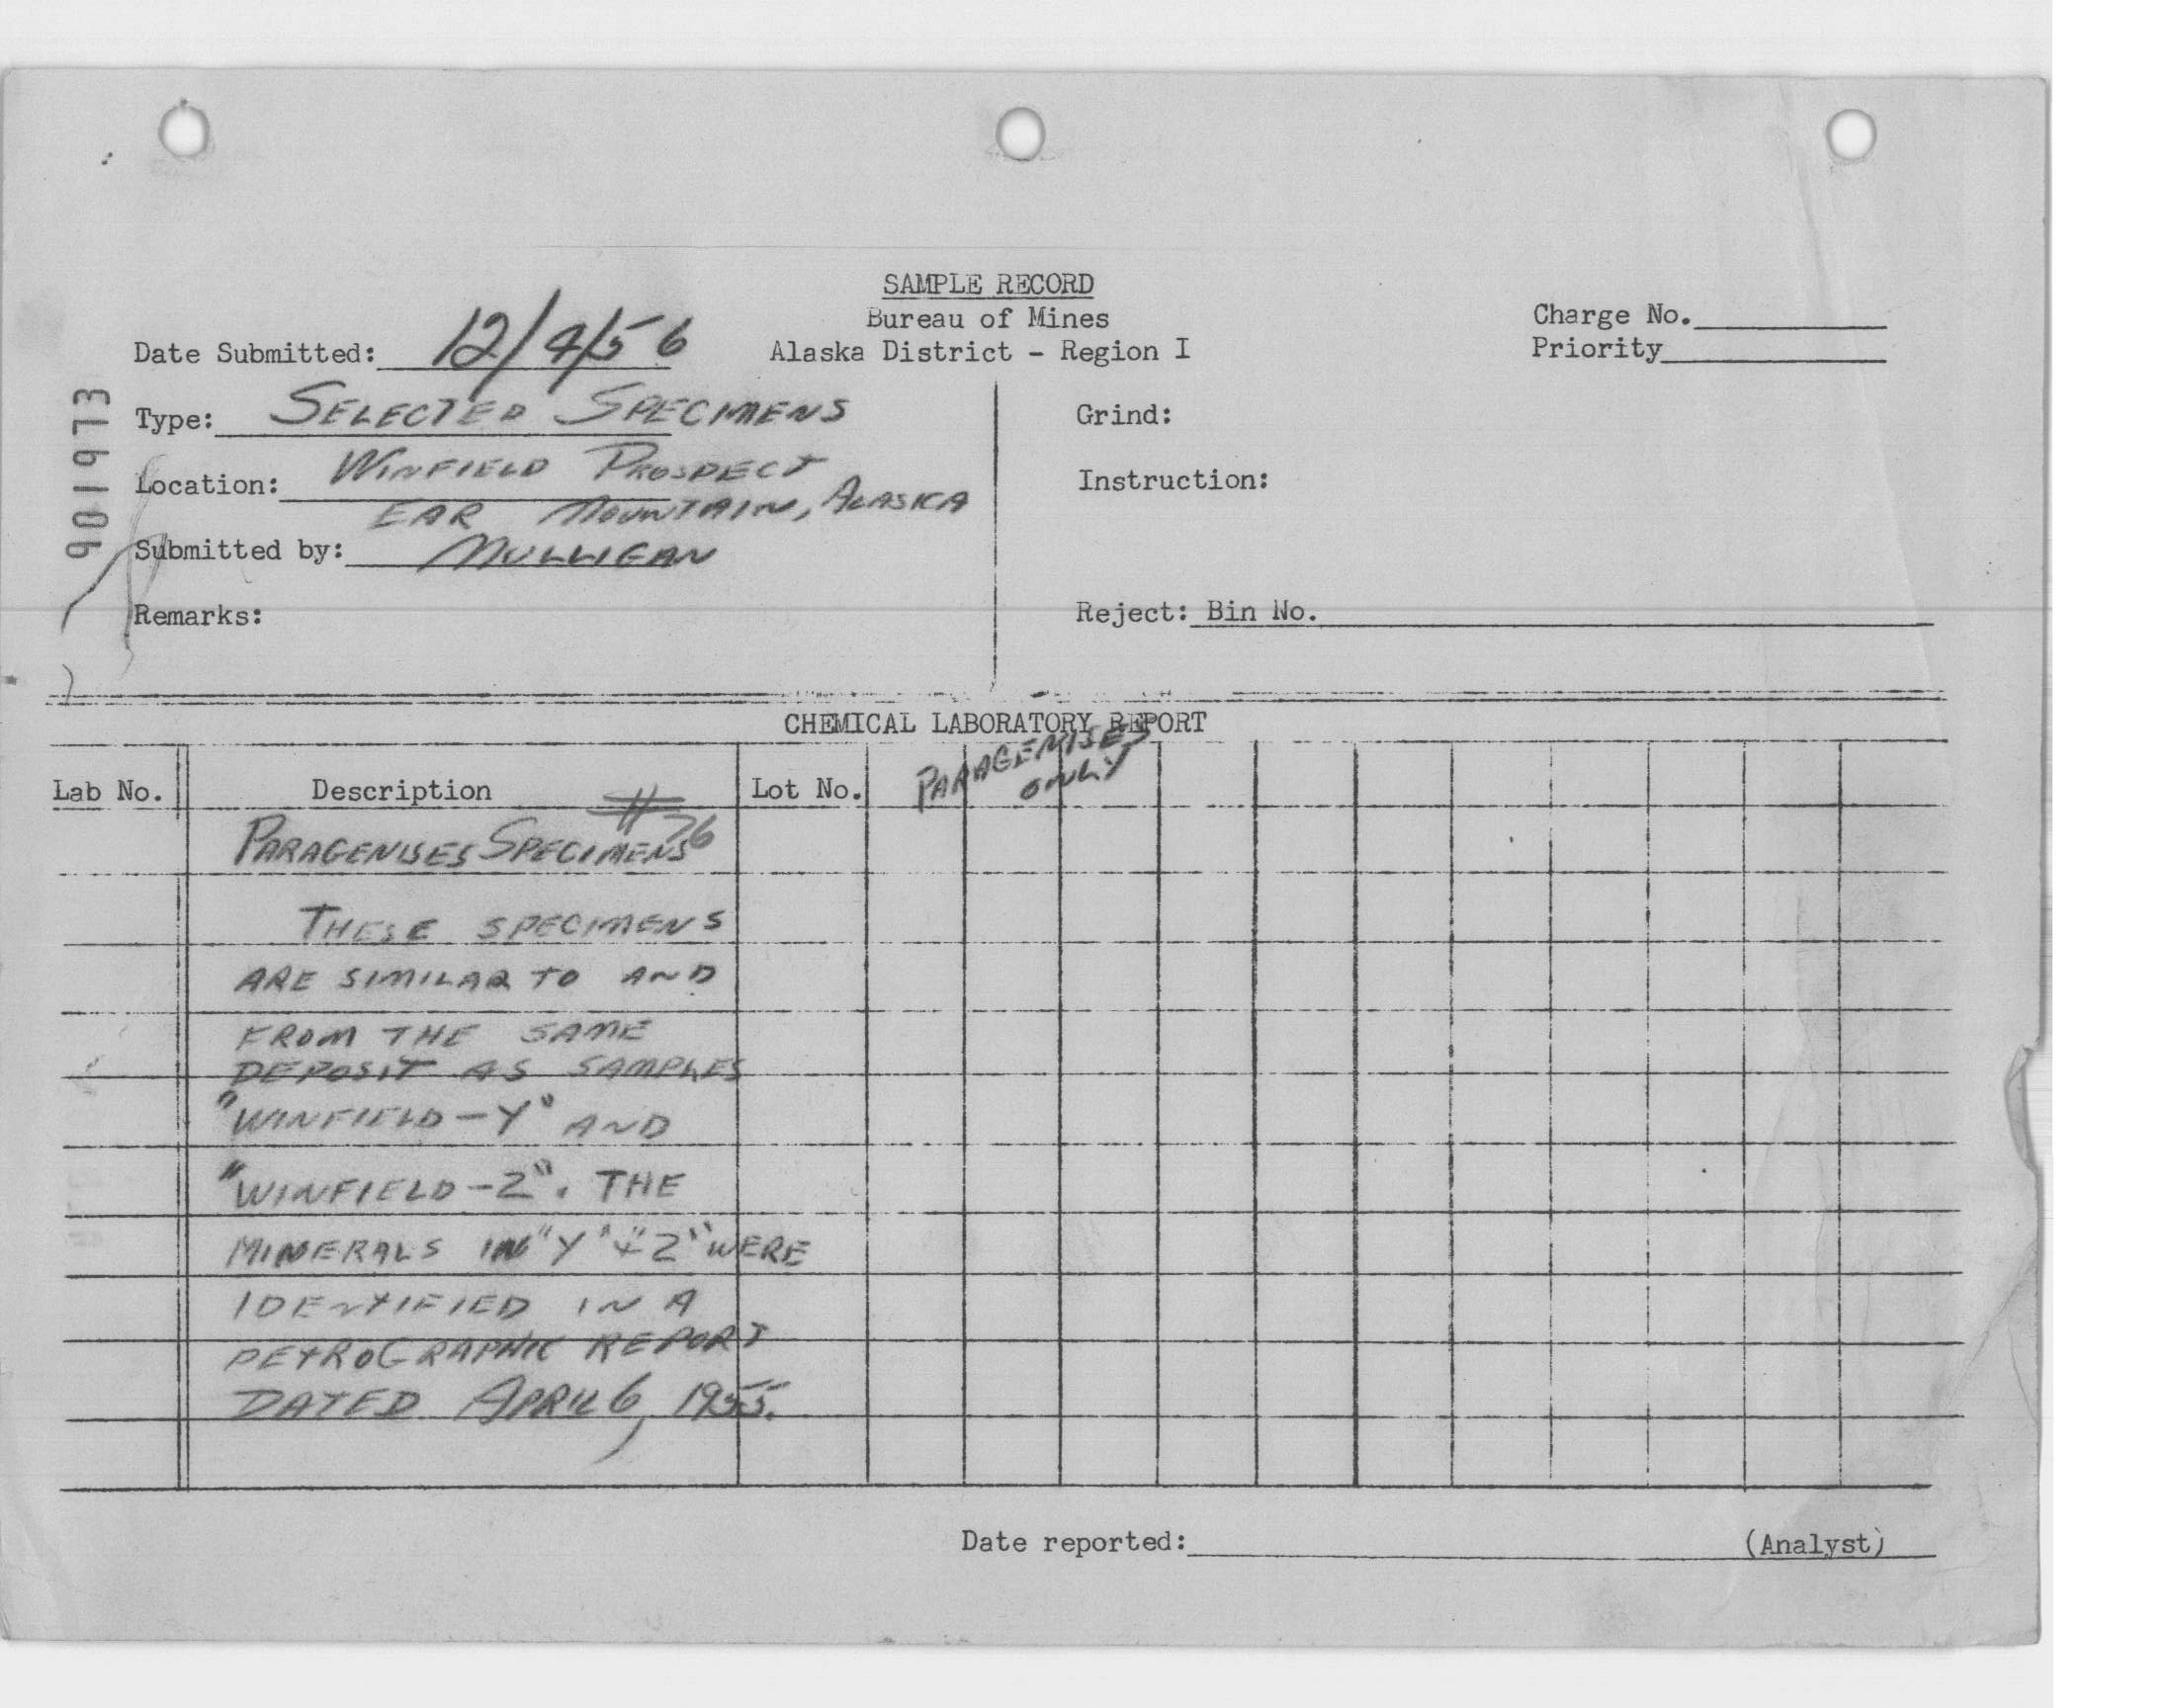 SAMPLE RECORD
Bureau of Mines
Alaska District - Region I
Charge No.
Priority
Date Submitted: 12/4/56
Type: SELECTED SPECIMENS
Location: WINFIELD PROSPECT
EAR MOUNTAIN, ALASKA
Submitted by: MULLIGAN
Remarks:
901973
Grind:
Instruction:
Reject: Bin No.
CHEMICAL LABORATORY REPORT
Lab No. Description Lot No. PARAGENISES
ONLY
PARAGENISES SPECIMENS #26
THESE SPECIMENS
ARE SIMILAR TO AND
FROM THE SAME
DEPOSIT AS SAMPLES
"WINFIELD-Y" AND
"WINFIELD-Z". THE
MINERALS IN "Y" & "Z" WERE
IDENTIFIED IN A
PETROGRAPHIC REPORT
DATED APRIL 6, 1955.
Date reported: (Analyst)